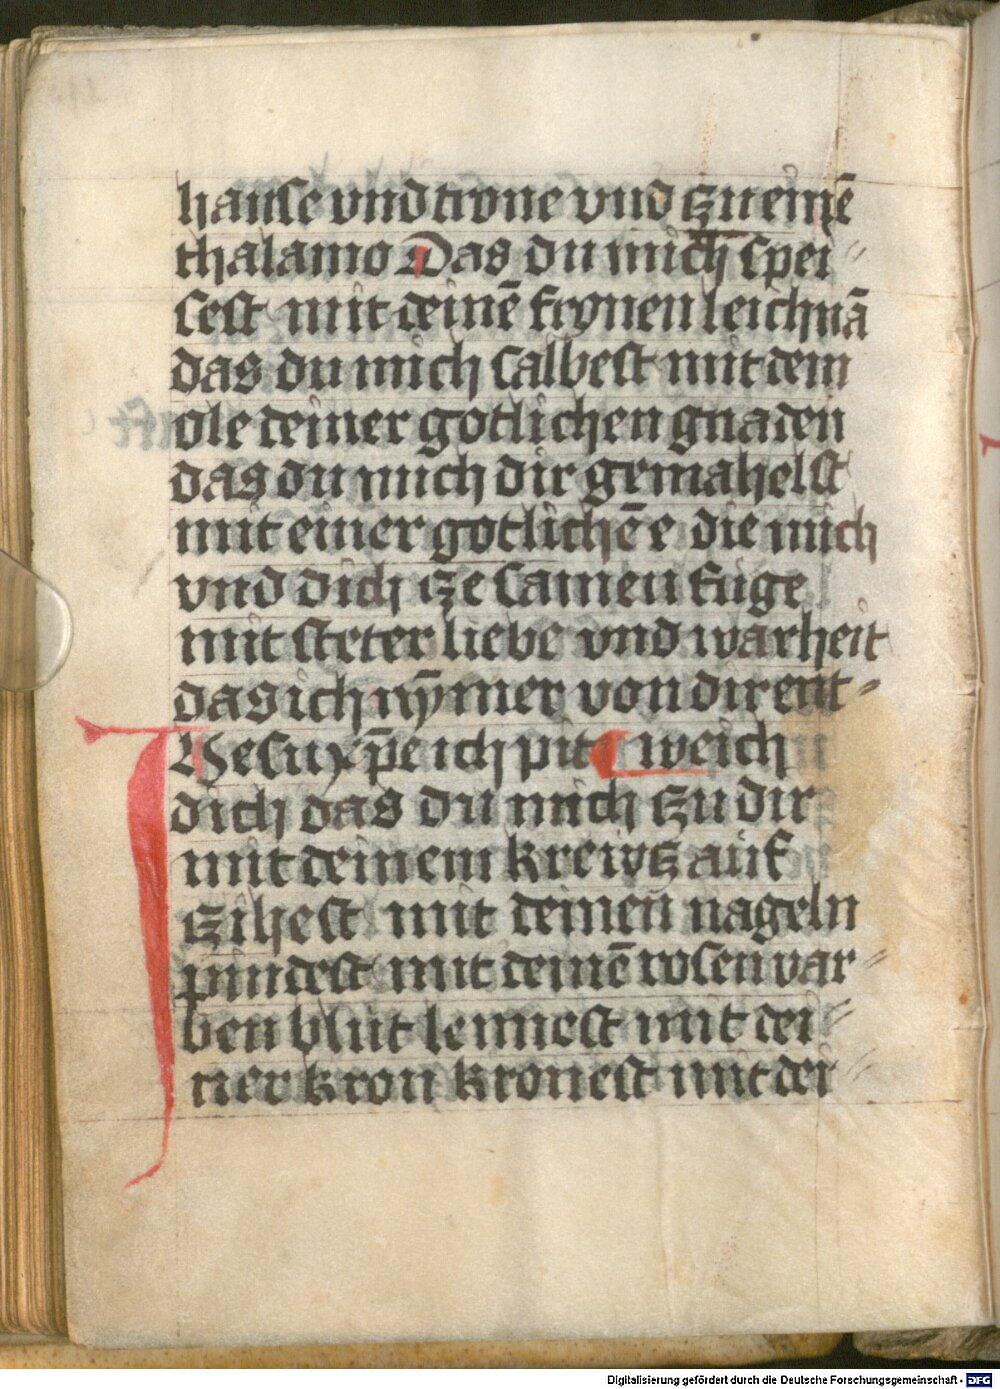 hause vnd trone vnd zu einē
thalamo Das du mich spei⸗
sest mit deinē fronen leichnā
das du mich salbest mit dem
ole deiner gotlichen gnaden
das du mich dir gemahelst
mit einer gotlichē e die mich
vnd dich ze samen fuge
mit steter liebe vnd warheit
das ich nȳmer von dir ent⸗
Jhesu xp̄e ich pit weich
dich das du mich zu dir
mit deinem krewz auf
zihest mit deinen nageln
pindest mit deinē rosenvar⸗
ben blut lennest mit dei⸗
ner kron kronest mit dei⸗
Digitalisierung gefördert durch die Deutsche Forschungsgemeinschaft - DFG